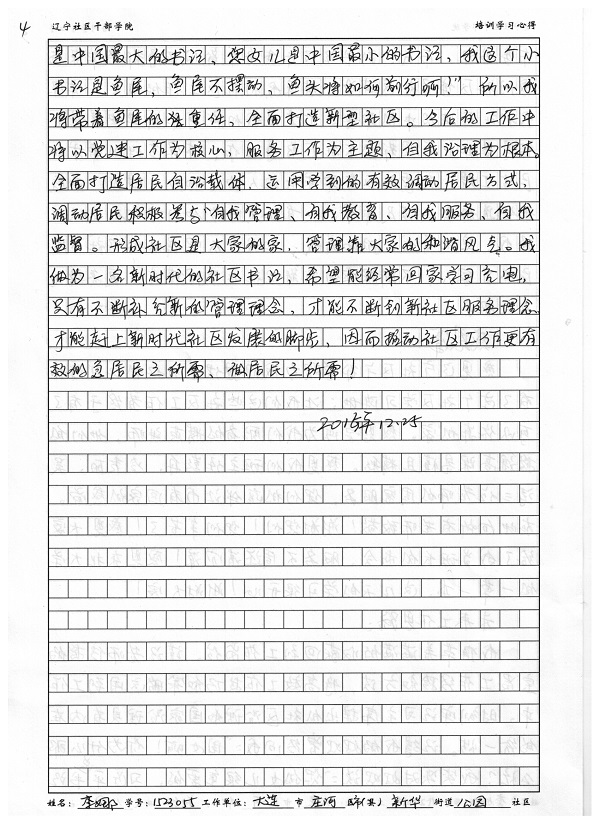 4
辽宁社区干部学院 培训学习心得
是中国最大的书记，您女儿是中国最小的书记，我这个小
书记是鱼尾，鱼尾不摆动，鱼头将如何前行啊！”所以我
将带着鱼尾的强重任，全面打造新型社区。今后的工作中
将以党建工作为核心，服务工作为主题，自我治理为根本。
全面打造居民自治载体，运用学到的有效调动居民方式，
调动居民积极参与自我管理、自我教育、自我服务、自我
监督。形成社区是大家的家，管理靠大家的和谐风气。我
做为一名新时代的社区书记，希望能经常回家学习充电，
只有不断补充新的管理理念，才能不断创新社区服务理念
才能赶上新时代社区发展的脚步，因而推动社区工作更有
效的急居民之所需、做居民之所需！
2015年12.25
姓名：李娜 学号：1523055 工作单位：大连 市 庄河 区市(县) 新华 街道 公园 社区